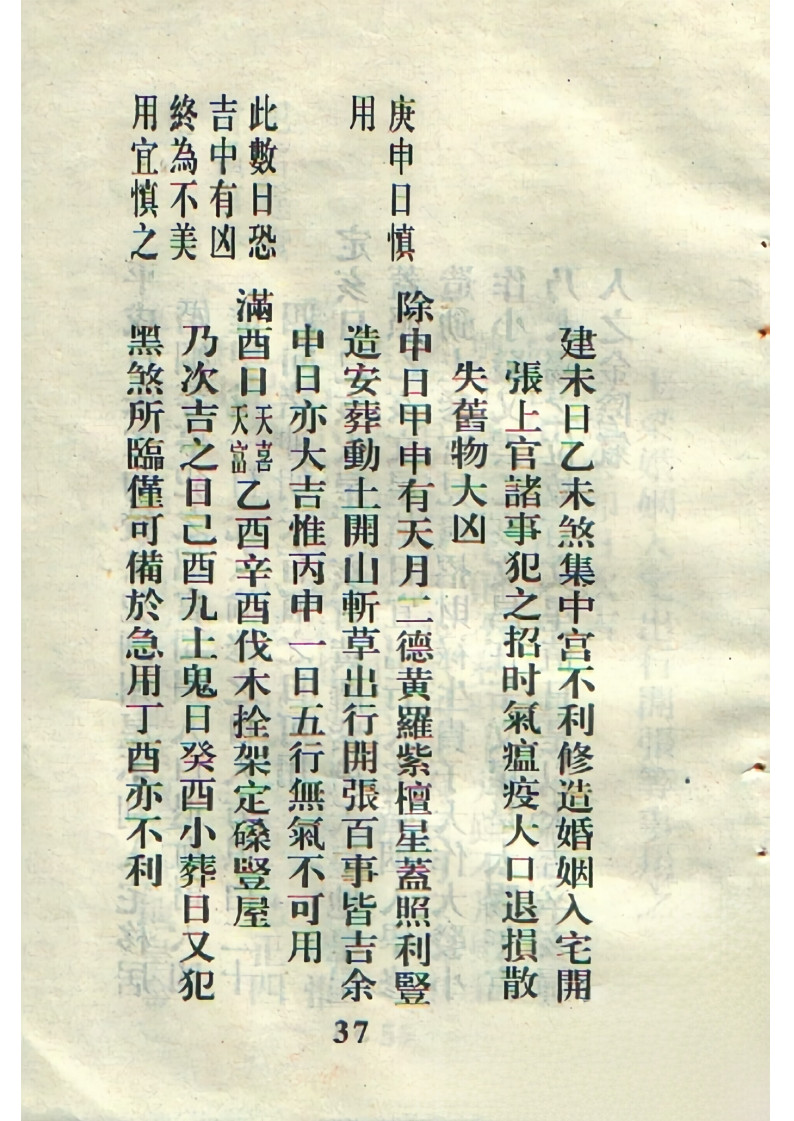 建未日乙未煞集中宮不利修造婚姻入宅開
張上官諸事犯之招时氣瘟疫人口退損散
失舊物大凶
庚申日慎
用
除申日甲申有天月二德黃羅紫檀星蓋照利豎
造安葬動土開山斬草出行開張百事皆吉余
申日亦大吉惟丙申一日五行無氣不可用
此數日恐
吉中有凶
終為不美
用宜慎之
滿酉日天喜天富乙酉辛酉伐木拴架定磉豎屋
乃次吉之日己酉九土鬼日癸酉小葬日又犯
黑煞所臨僅可備於急用丁酉亦不利
37